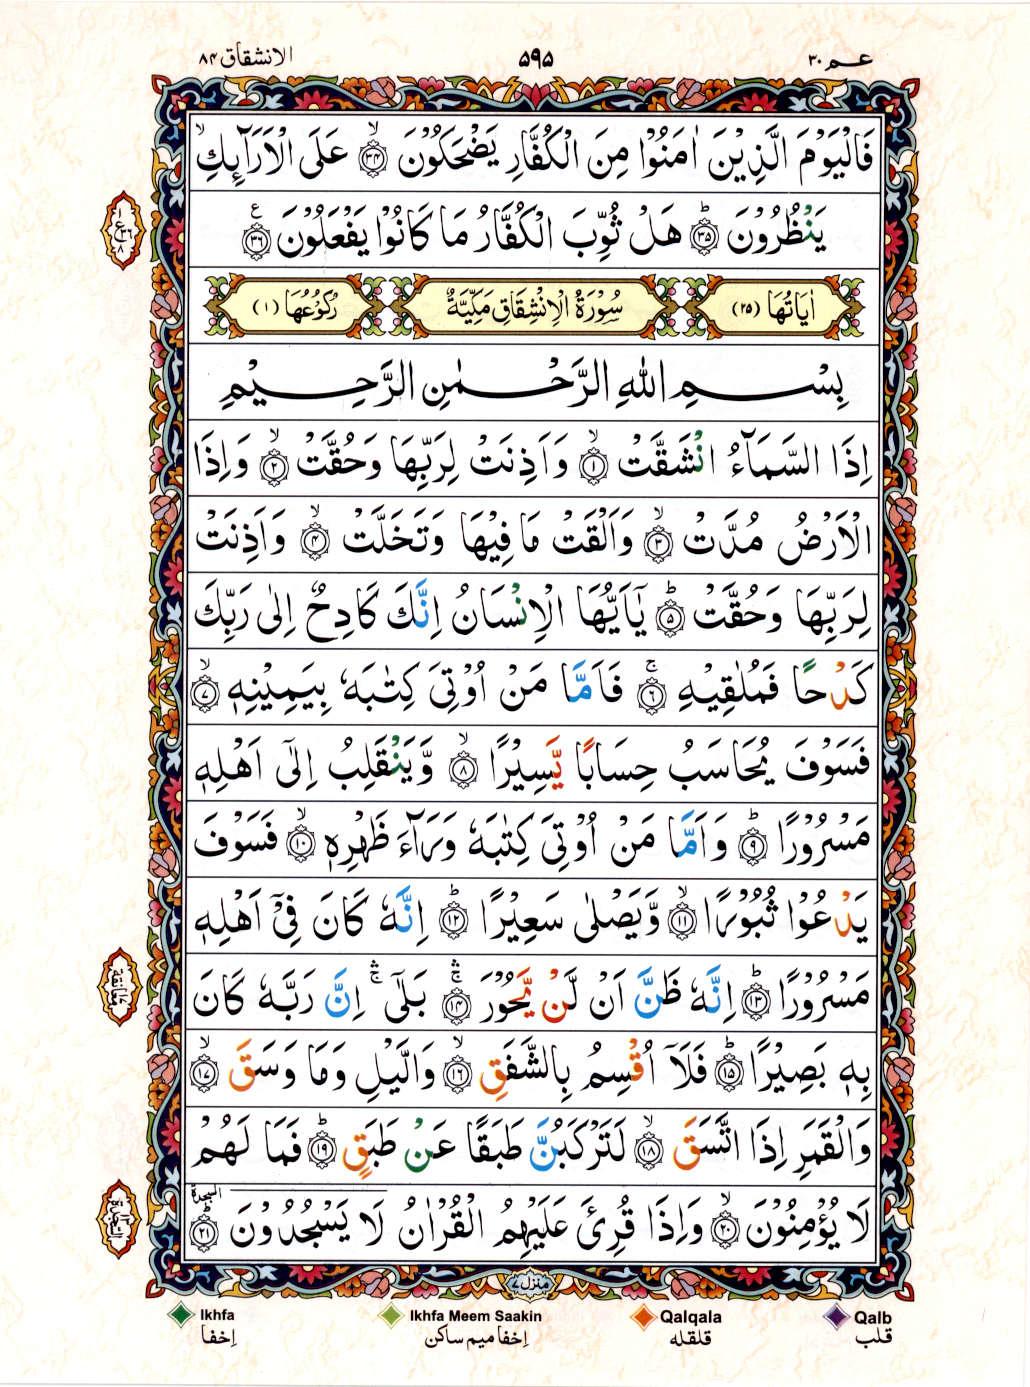 عـم ۳۰ ۵۹۵ الانشقاق ۸۴
فَالْيَوْمَ الَّذِيْنَ اٰمَنُوْا مِنَ الْكُفَّارِ يَضْحَكُوْنَ ۙ‏﴿۳۴﴾ عَلَى الْاَرَآئِكِ ۙ
يَنْظُرُوْنَ ؕ‏﴿۳۵﴾ هَلْ ثُوِّبَ الْكُفَّارُ مَا كَانُوْا يَفْعَلُوْنَ ﴿۳۶﴾ ع
اٰيَاتُهَا (۲۵) سُوْرَةُ الْاِنْشِقَاقِ مَكِّيَّةٌ رُكُوْعُهَا (۱)
بِسْمِ اللهِ الرَّحْمٰنِ الرَّحِيْمِ
اِذَا السَّمَآءُ انْشَقَّتْ ۙ‏﴿۱﴾ وَاَذِنَتْ لِرَبِّهَا وَحُقَّتْ ۙ‏﴿۲﴾ وَاِذَا
الْاَرْضُ مُدَّتْ ۙ‏﴿۳﴾ وَاَلْقَتْ مَا فِيْهَا وَتَخَلَّتْ ۙ‏﴿۴﴾ وَاَذِنَتْ
لِرَبِّهَا وَحُقَّتْ ؕ‏﴿۵﴾ يٰۤاَيُّهَا الْاِنْسَانُ اِنَّكَ كَادِحٌ اِلٰى رَبِّكَ
كَدْحًا فَمُلٰقِيْهِ ۚ‏﴿۶﴾ فَاَمَّا مَنْ اُوْتِىَ كِتٰبَهٗ بِيَمِيْنِهٖ ۙ‏﴿۷﴾
فَسَوْفَ يُحَاسَبُ حِسَابًا يَّسِيْرًا ۙ‏﴿۸﴾ وَّيَنْقَلِبُ اِلٰٓى اَهْلِهٖ
مَسْرُوْرًا ؕ‏﴿۹﴾ وَاَمَّا مَنْ اُوْتِىَ كِتٰبَهٗ وَرَآءَ ظَهْرِهٖ ۙ‏﴿۱۰﴾ فَسَوْفَ
يَدْعُوْا ثُبُوْرًا ۙ‏﴿۱۱﴾ وَّيَصْلٰى سَعِيْرًا ؕ‏﴿۱۲﴾ اِنَّهٗ كَانَ فِىْۤ اَهْلِهٖ
مَسْرُوْرًا ؕ‏﴿۱۳﴾ اِنَّهٗ ظَنَّ اَنْ لَّنْ يَّحُوْرَ ۛۚ‏﴿۱۴﴾ بَلٰٓى ۛۚ اِنَّ رَبَّهٗ كَانَ
بِهٖ بَصِيْرًا ؕ‏﴿۱۵﴾ فَلَاۤ اُقْسِمُ بِالشَّفَقِ ۙ‏﴿۱۶﴾ وَالَّيْلِ وَمَا وَسَقَ ۙ‏﴿۱۷﴾
وَالْقَمَرِ اِذَا اتَّسَقَ ۙ‏﴿۱۸﴾ لَتَرْكَبُنَّ طَبَقًا عَنْ طَبَقٍ ؕ‏﴿۱۹﴾ فَمَا لَهُمْ
لَا يُؤْمِنُوْنَ ۙ‏﴿۲۰﴾ وَاِذَا قُرِئَ عَلَيْهِمُ الْقُرْاٰنُ لَا يَسْجُدُوْنَ ؕ‏﴿۲۱﴾ السجدة
منزل ۷
Ikhfa Ikhfa Meem Saakin Qalqala Qalb
اِخفا اِخفا میم ساکن قلقله قلب